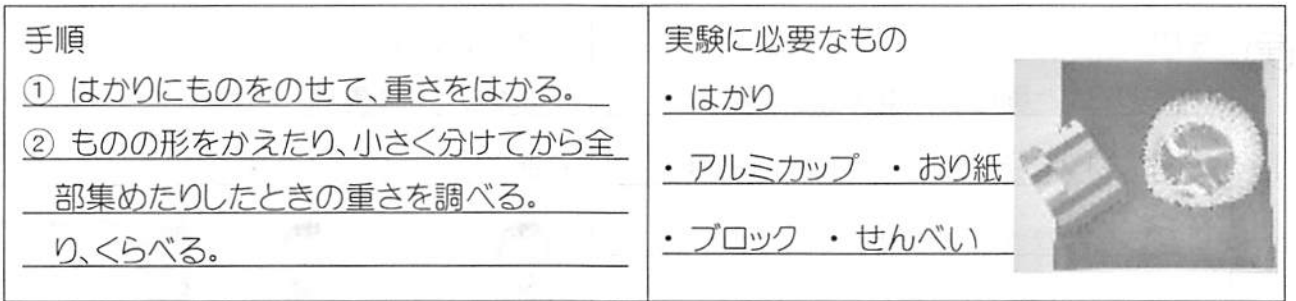 手順
① はかりにものをのせて、重さをはかる。
② ものの形をかえたり、小さく分けてから全
部集めたりしたときの重さを調べる。
り、くらべる。
実験に必要なもの
・ はかり
・ アルミカップ ・ おり紙
・ ブロック ・ せんべい